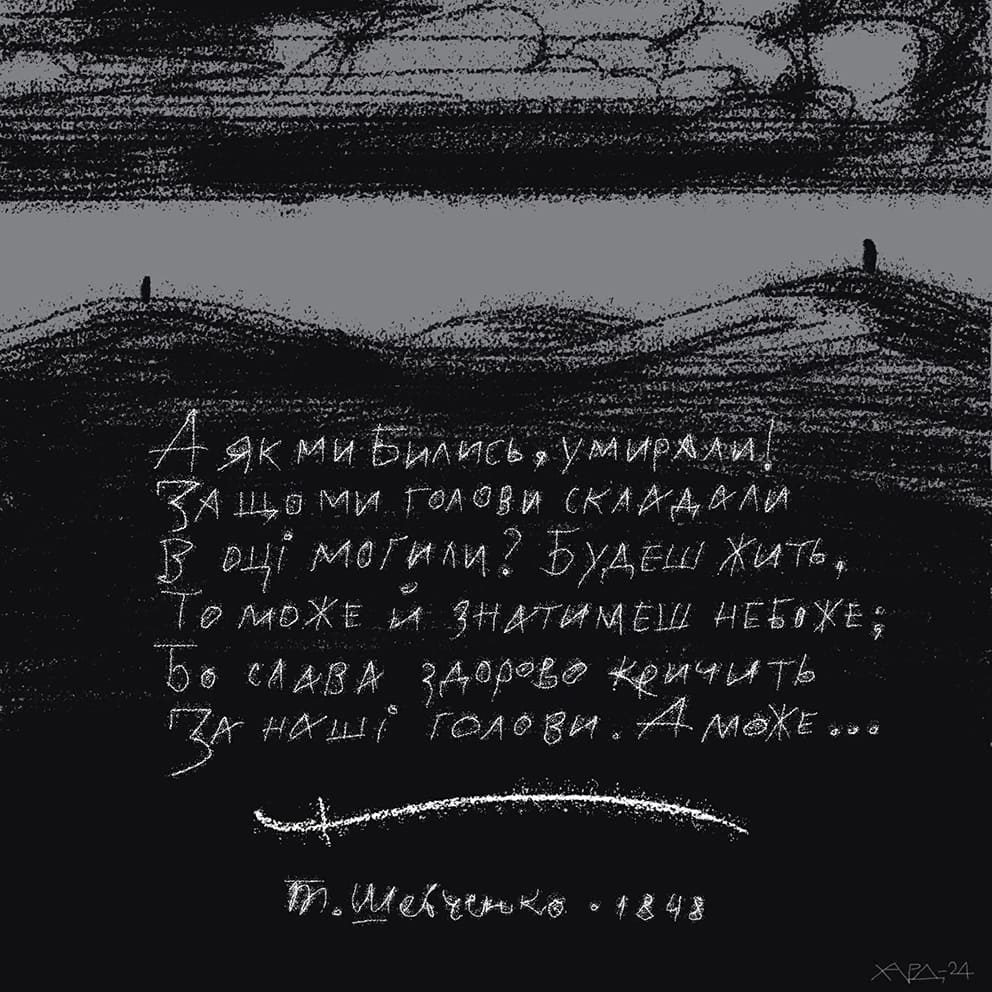 А як ми бились, умирали!
За що ми голови складали
В оці могили? Будеш жить,
То може й знатимеш небоже;
Бо слава здорово кричить
За наші голови. А може...
Т. Шевченко · 1848
ХАРД-24